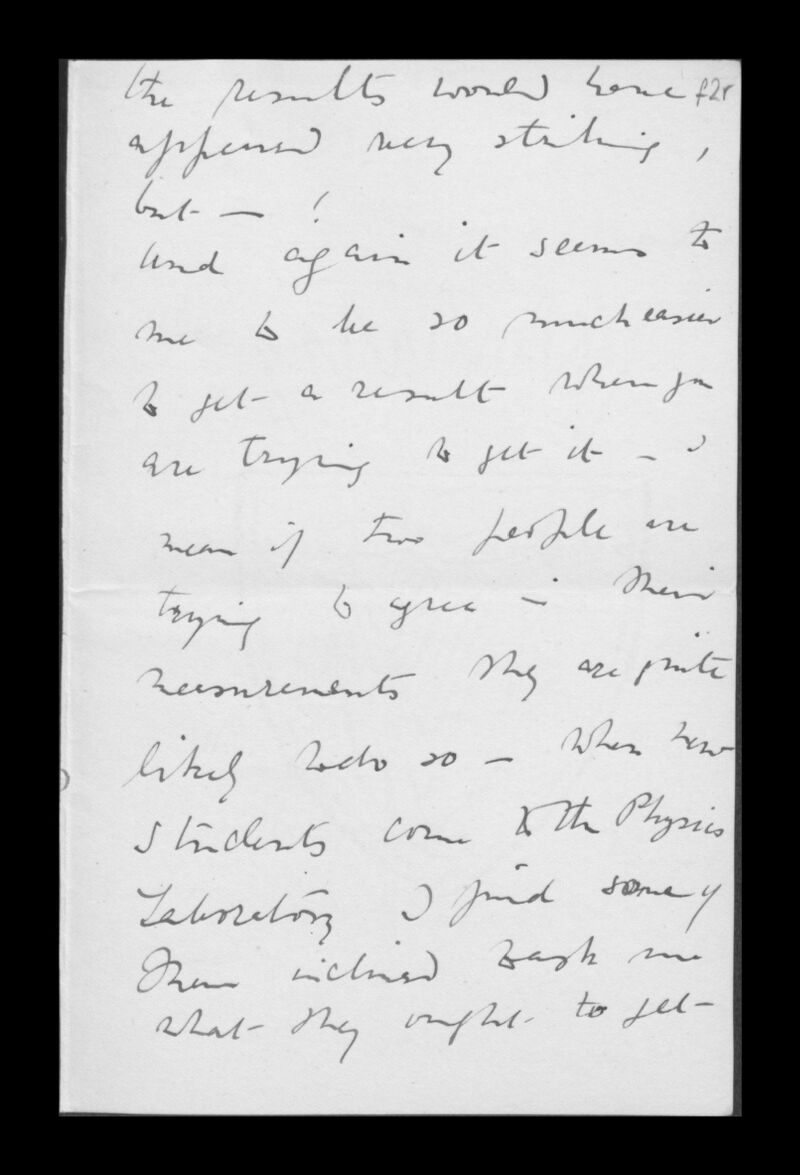 the results would have f2r
appeared very striking,
but — !
And again it seems to
me to be so much easier
to get a result when you
are trying to get it — I
mean if two people are
trying to agree in their
measurements they are quite
likely to do so — when new
students come to the Physics
Laboratory I find some of
them inclined to ask me
what they ought to get